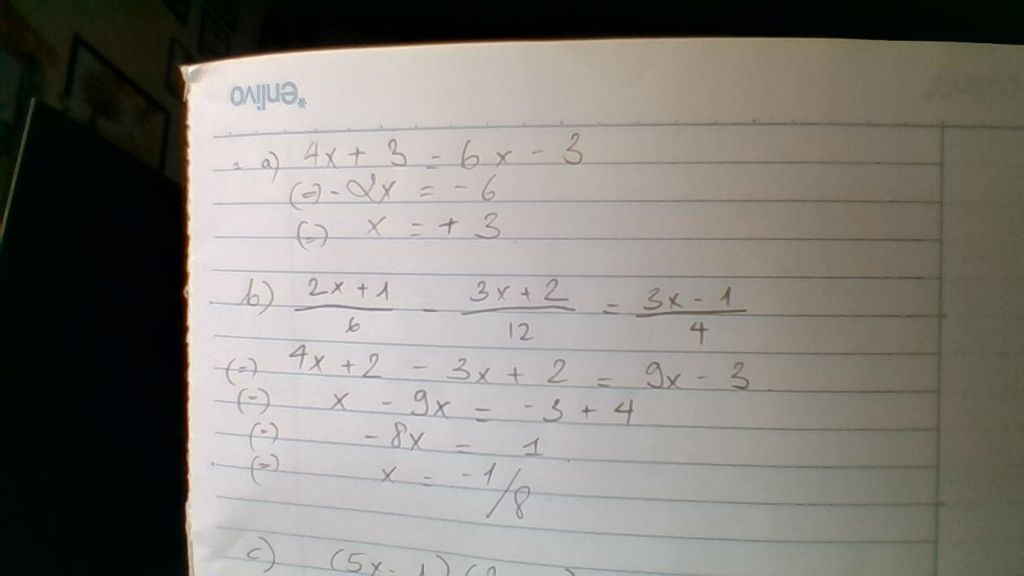 *enlivo
a) 4x + 3 = 6x - 3
(=) - 2x = - 6
(=) x = + 3
b) (2x + 1)/6 - (3x + 2)/12 = (3x - 1)/4
(=) 4x + 2 - 3x + 2 = 9x - 3
(=) x - 9x = - 3 + 4
(=) - 8x = 1
(=) x = -1/8
c) (5x - 1)